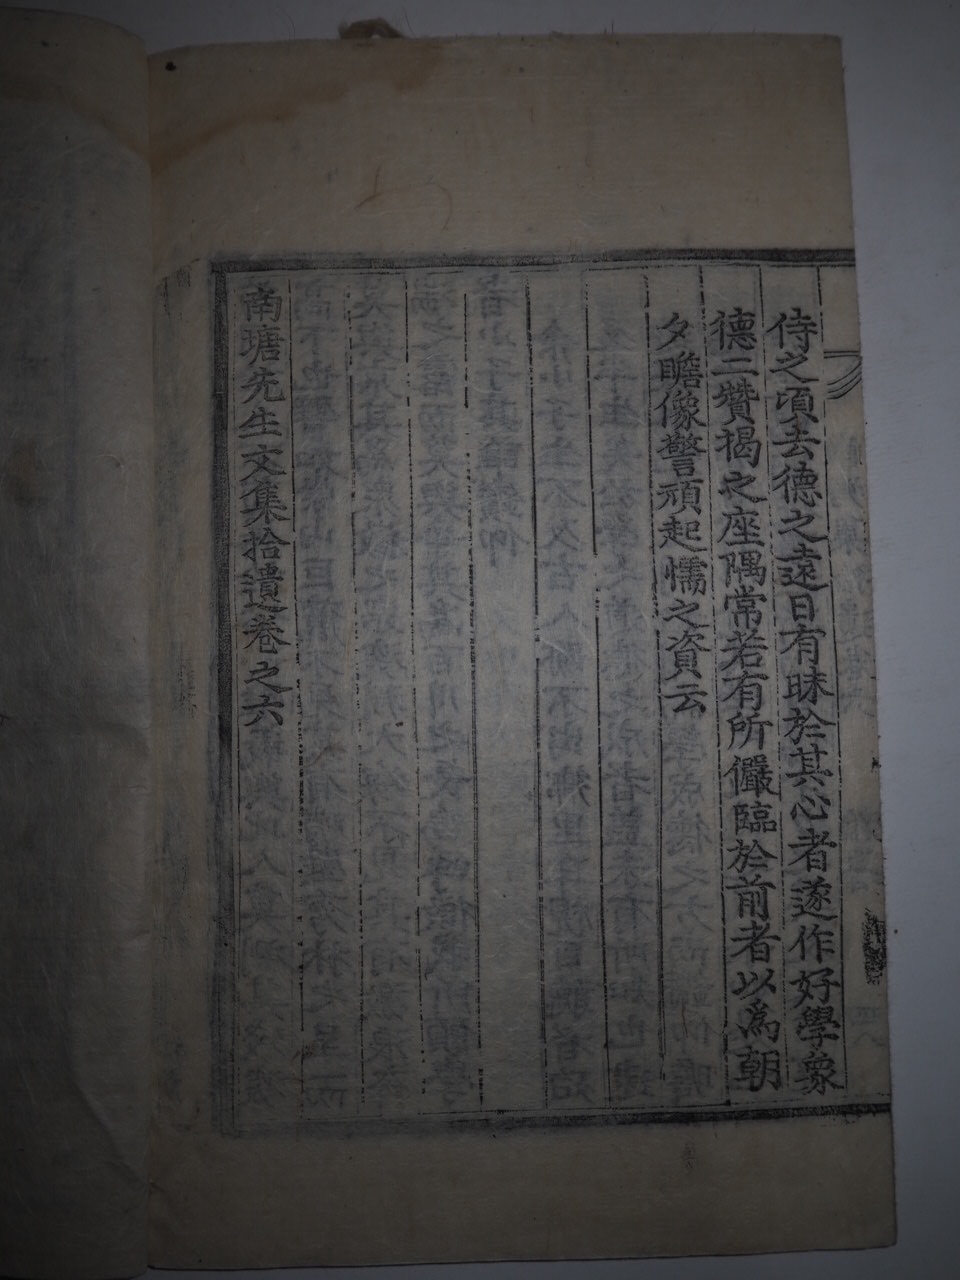 侍之頃去德之遠日有昧於其心者遂作好學象
德二贊揭之座隅常若有所儼臨於前者以爲朝
夕瞻像警頑起懦之資云
南塘先生文集拾遺卷之六